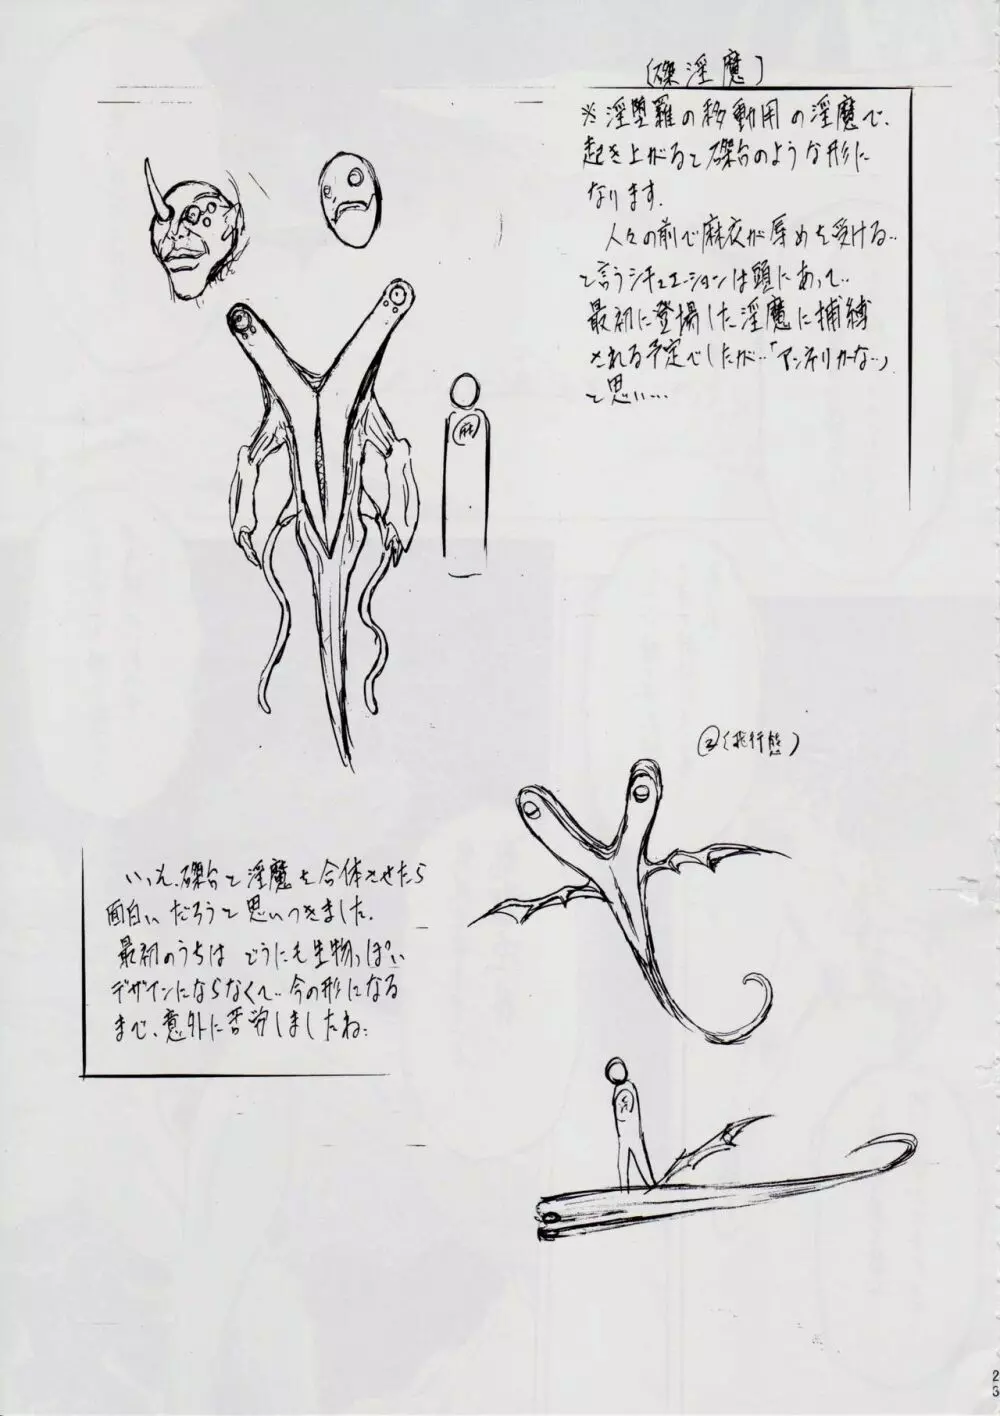 〔磔淫魔〕
※淫堕羅の移動用の淫魔で、
起き上がると磔台のような形に
なります。
人々の前で麻衣が辱めを受ける‥
と言うシチュエーションは頭にあって‥
最初に登場した淫魔に捕縛
される予定でしたが‥「アンマリかな‥」
と思い…
麻
②(飛行態)
いっそ、磔台と淫魔を合体させたら
面白いだろうと思いつきました。
最初のうちは どうにも生物っぽい
デザインにならなくて‥今の形になる
まで、意外に苦労しましたね‥
23